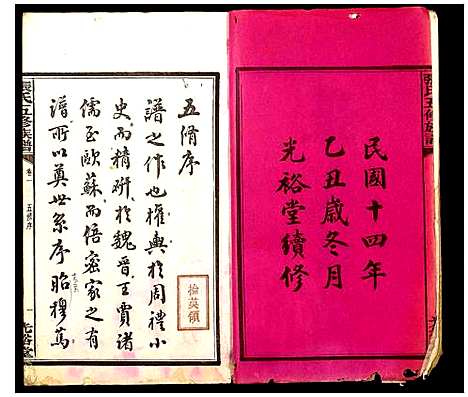 民國十四年
乙丑歲冬月
光裕堂續修
張氏五修族譜
五脩序
譜之作也權輿於周禮小
史而精硏於魏晉王賈諸
儒至歐蘇而倍密家之有
譜所以奠世系序昭穆篤
張氏五修族譜
卷一
五修序
一
光裕堂